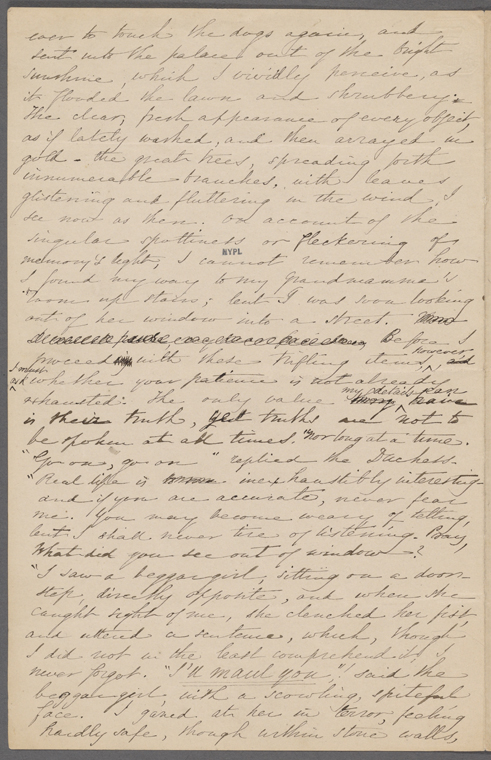 ever to touch the dogs again, and
sent into the palace out of the bright
sunshine, which I vividly perceive, as
it flooded the lawn and shrubbery.
The clear, fresh appearance of every object,
as if lately washed, and then arrayed in
gold - the great trees, spreading forth
innumerable branches, with leaves
glistening and fluttering in the wind, I
see now as then. On account of the
singular spottiness or fleckering of
NYPL
memory's light, I cannot remember how
I found my way to my Grandmamma's
room up stairs; but I was soon looking
out of her window into a street.
Before I
proceed with these trifling items, however,
I must
ask whether your patience is not already
exhausted. The only value my details can
have
is their truth, yet truths are not to
be spoken at all times. Nor long at a time.
"Go on, go on" replied the Duchess.
"Real life is inexhaustibly interesting
and if you are accurate, never fear
me. You may become weary of telling,
but I shall never tire of listening. Pray,
what did you see out of window?
"I saw a beggar girl, sitting on a door-
step, directly opposite, and when she
caught sight of me, she clenched her fist,
and uttered a sentence, which, though
I did not in the least comprehend it, I
never forgot. "I'll maul you"! said the
beggar girl, with a scowling, spiteful
face. I gazed at her in terror, feeling
hardly safe, though within stone walls,